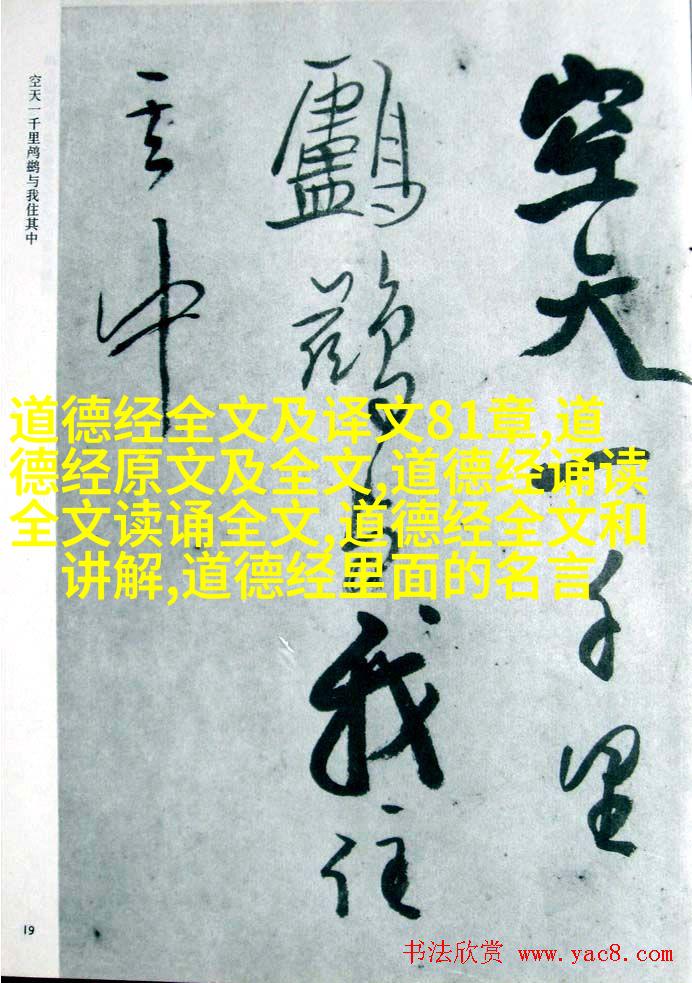 空天一千里
鸕鶿与我住
其中
空天一千里鸬鹚与我住其中
道德经全文及译文81章,道
德经原文及全文,道德经诵读
全文读诵全文,道德经全文和
讲解,道德经里面的名言
19
书法欣赏 www.yac8.com